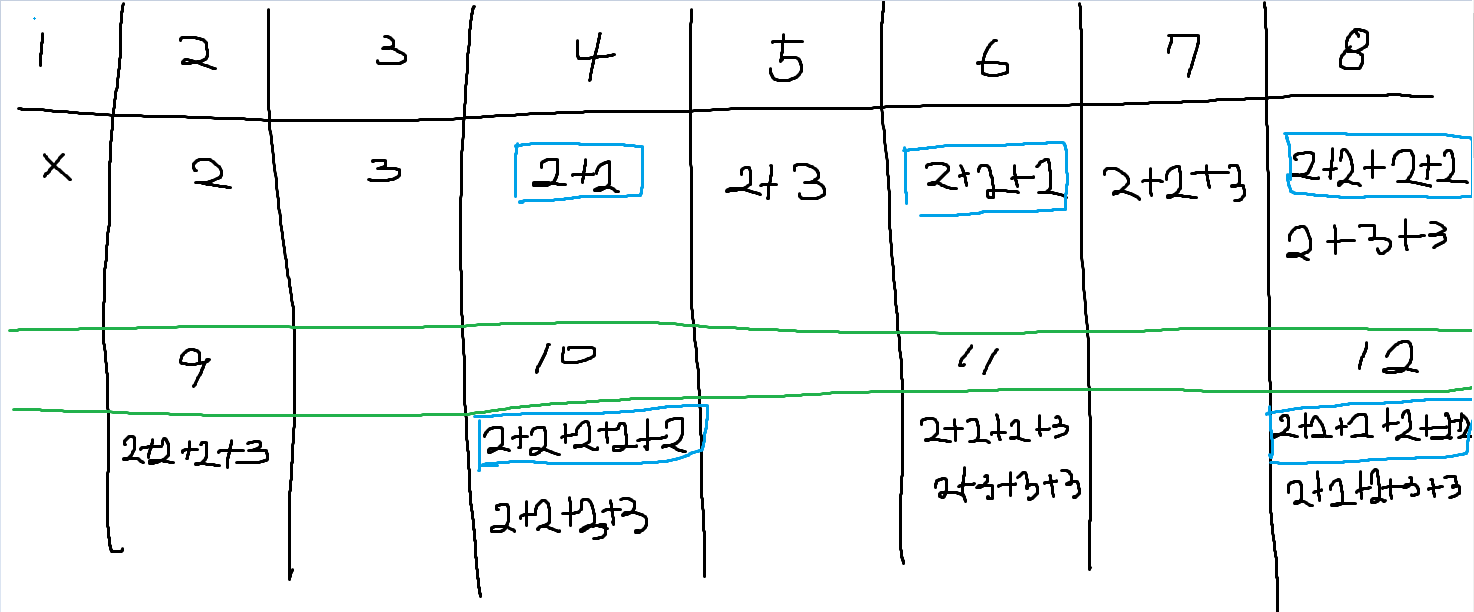 1 2 3 4 5 6 7 8
X 2 3 2+2 2+3 2+2+2 2+2+3 2+2+2+2
2+3+3
9 10 11 12
2+2+2+3 2+2+2+2+2 2+2+2+3 2+2+2+2+2+2
2+2+3+3 2+3+3+3 2+2+2+3+3